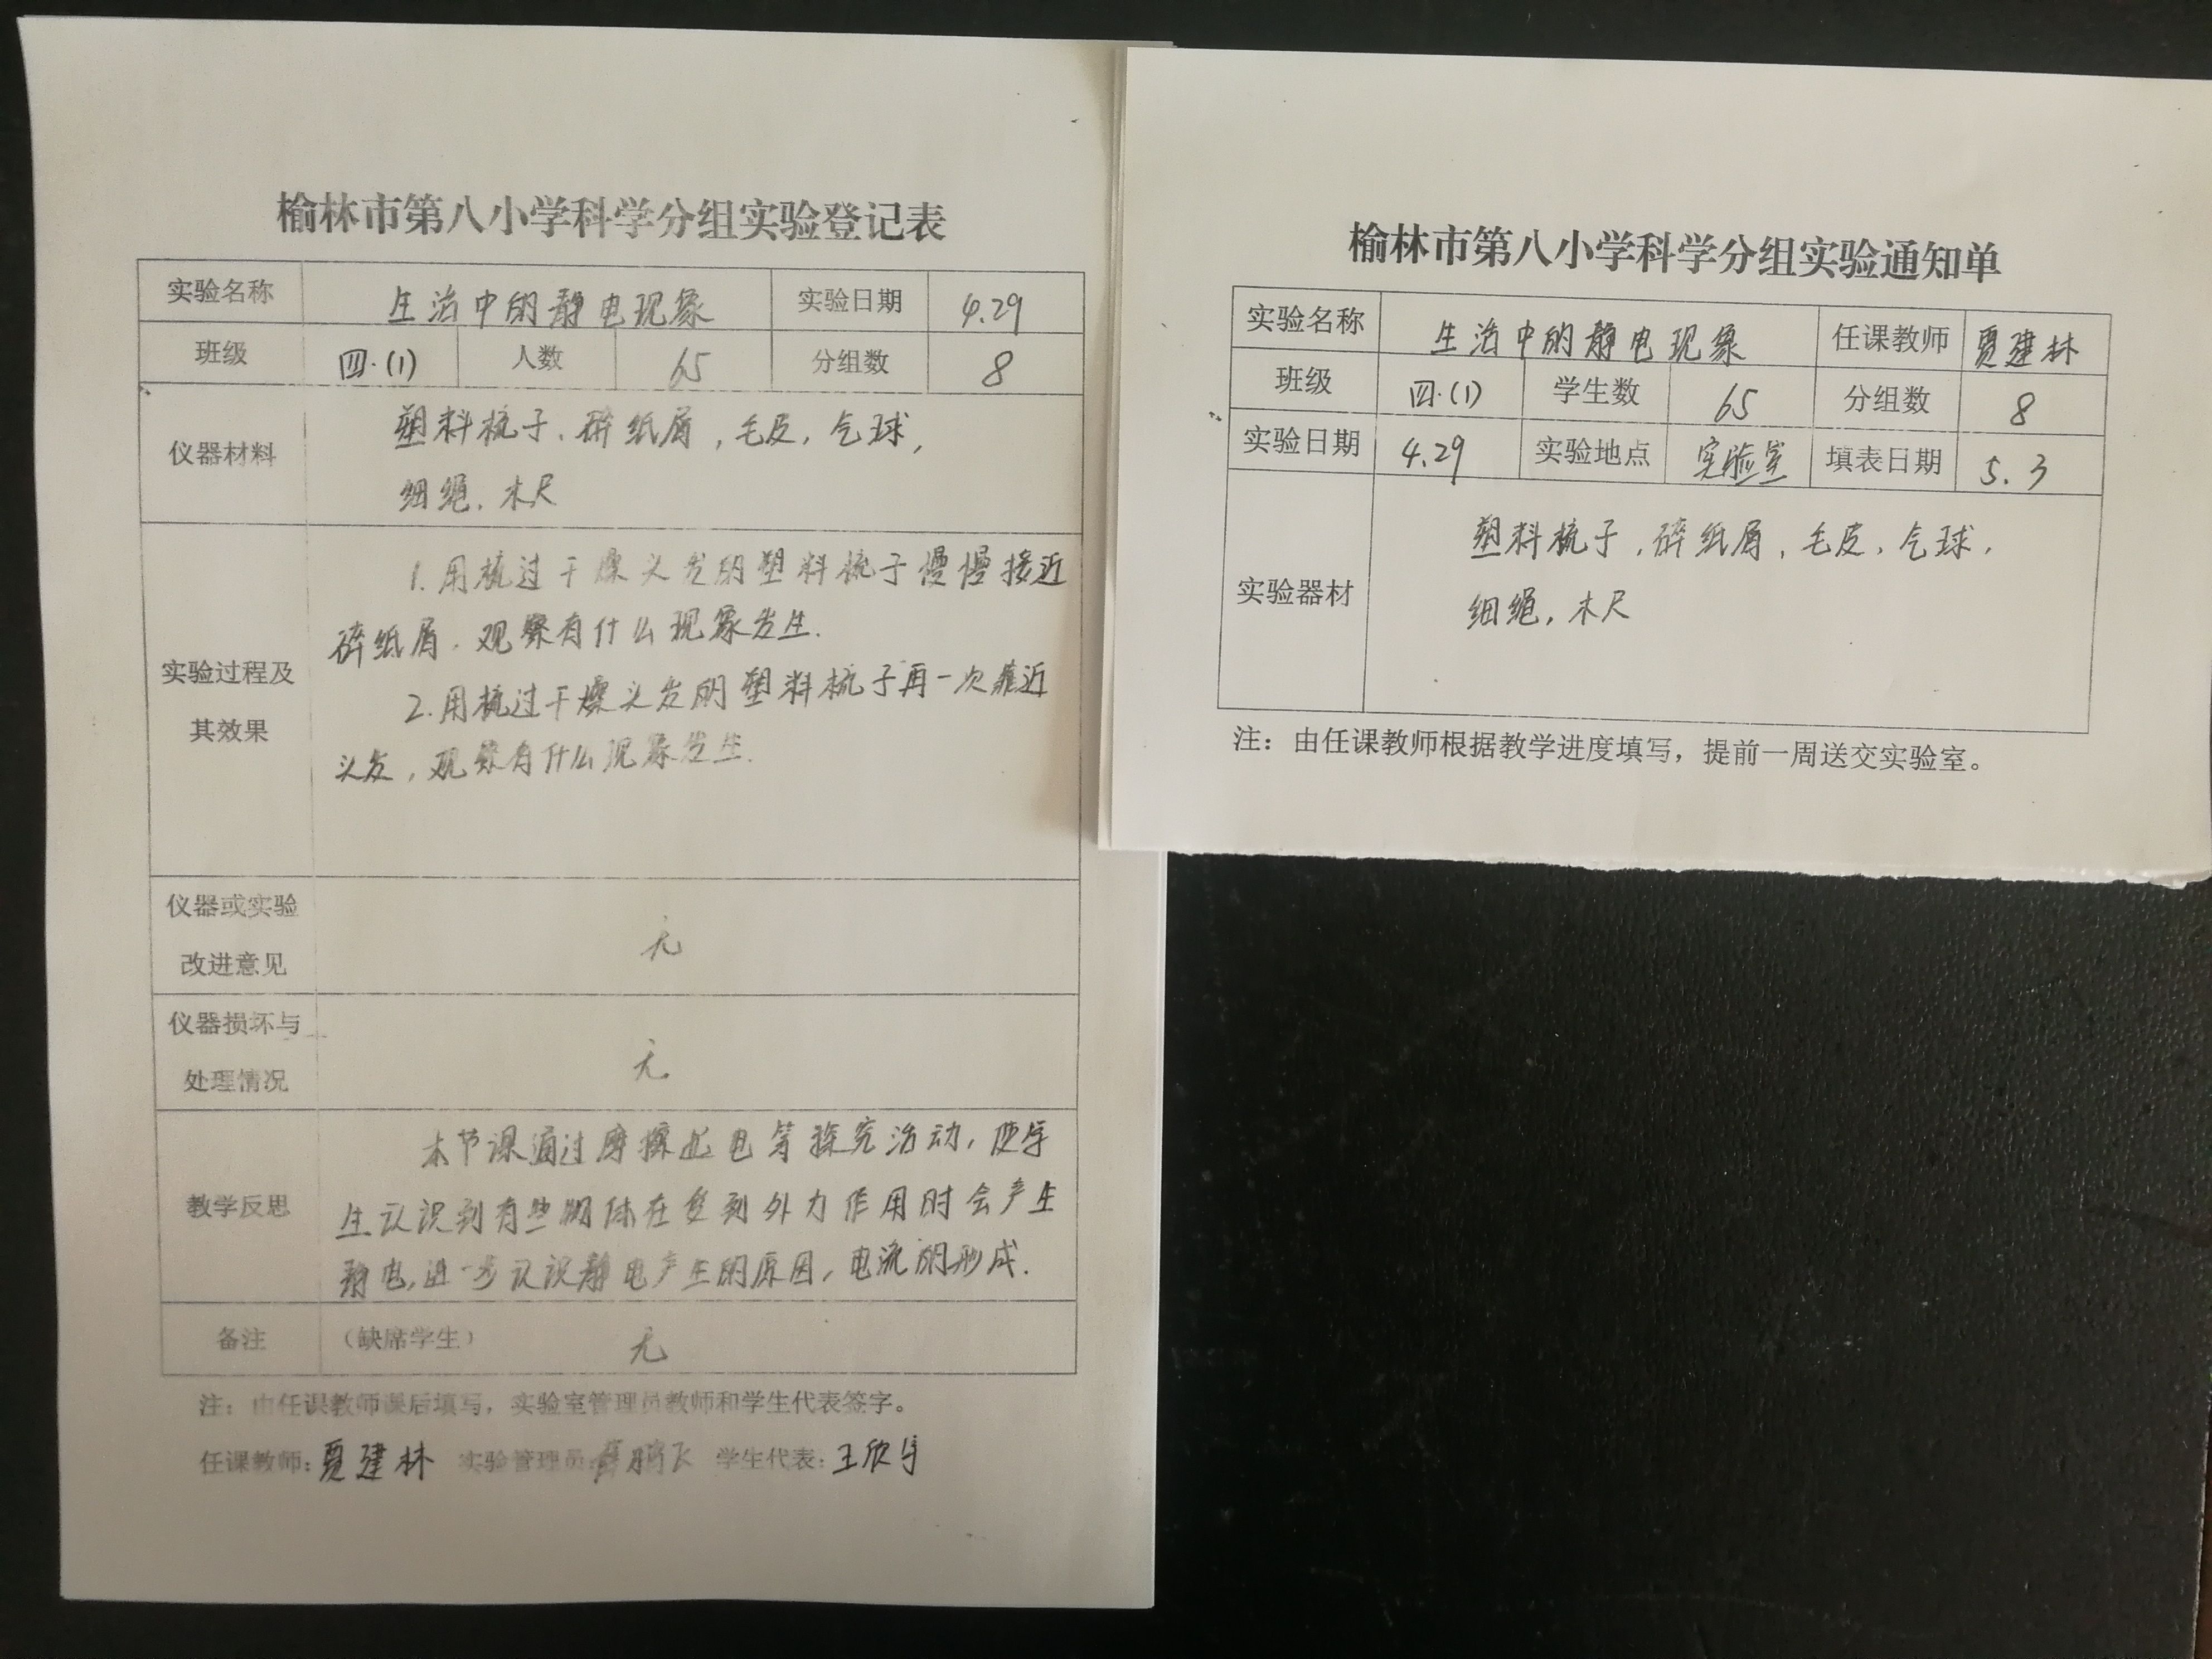 榆林市第八小学科学分组实验登记表
实验名称 生活中的静电现象 实验日期 4.29
班级 四.(1) 人数 65 分组数 8
仪器材料
塑料梳子、碎纸屑,毛皮,气球,
细绳,木尺
实验过程及
其效果
1.用梳过干燥头发的塑料梳子慢慢接近
碎纸屑,观察有什么现象发生.
2.用梳过干燥头发的塑料梳子再一次靠近
头发,观察有什么现象发生.
仪器或实验
改进意见
无
仪器损坏与
处理情况
无
教学反思
本节课通过摩擦起电等探究活动,使学
生认识到有些物体在受到外力作用时会产生
静电,进一步认识静电产生的原因,电流的形成.
备注 (缺席学生) 无
注:由任课教师课后填写,实验室管理员教师和学生代表签字。
任课教师:贾建林 实验管理员: 鹏飞 学生代表:王欣宇
榆林市第八小学科学分组实验通知单
实验名称 生活中的静电现象 任课教师 贾建林
班级 四.(1) 学生数 65 分组数 8
实验日期 4.29 实验地点 实验室 填表日期 5.3
实验器材
塑料梳子,碎纸屑,毛皮,气球,
细绳,木尺
注:由任课教师根据教学进度填写,提前一周送交实验室。